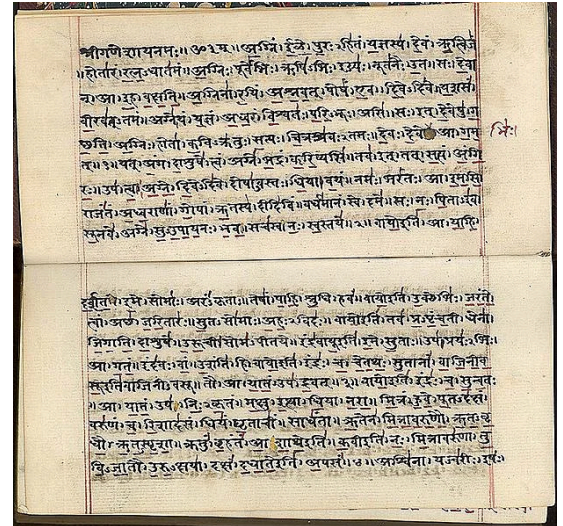 श्रीगणेशायनमः॥ॐ३म्॥अग्निं।ईळे।पुरःऽहितं।यज्ञस्य।देवं।ऋत्विजं
॥होतारं।रत्नऽधातमं॥अग्निः।पूर्वेभिः।ऋषिऽभिः।ईड्यः।नूतनैः।उत॥सः।देवा
न्।आ।इह।वक्षति॥अग्निना।रयिं।अश्नवत्।पोषं।एव।दिवेऽदिवे॥यशसं
वीरवत्ऽतमं॥अग्ने।यं।यज्ञं।अध्वरं।विश्वतः।परिऽभूः।असि॥सः।इत्।देवेषु।ग
च्छति॥अग्निः।होता।कविऽक्रतुः।सत्यः।चित्रश्रवःऽतमः॥देवः।देवे।आ।गम
भिः।
त्॥१॥यत्।अंग।दाशुषे।त्वं।अग्ने।भद्रं।करिष्यसि॥तव।इत्।तत्।सत्यं।अंगि
रः॥उप।त्वा।अग्ने।दिवेऽदिवे।दोषाऽवस्तः।धिया।वयं॥नमः।भरंतः।आ।इमसि॥
राजंतं।अध्वराणां।गोपां।ऋतस्य।दीदिविं॥वर्धमानं।स्वे।दमे॥सः।नः।पिताऽइव।
सूनवे।अग्ने।सुऽउपायनः।भव॥सचस्व।नः।स्वस्तये॥२॥वायोइति।आ।याहि।
दर्शत।इमे।सोमाः।अरंऽकृताः॥तेषां।पाहि।श्रुधि।हवं॥वायोइति।उक्थेभिः।जरंते।
त्वां।अच्छ।जरितारः॥सुतऽसोमाः।अहःऽविदः॥वायोइति।तव।प्रऽपृंचती।धेना।
जिगाति।दाशुषे॥उरूची।सोमऽपीतये॥इंद्रवायूइति।इमे।सुताः॥उप।प्रयःऽभिः।
आ।गतं॥इंदवः।वां।उशंति।हि॥वायोइति।इंद्रः।च।चेतथः।सुतानां।वाजिनीव
सूइतिवाजिनीऽवसू॥तौ।आ।यातं।उप।द्रवत्॥३॥वायोइति।इंद्रः।च।सुन्वतः
॥आ।यातं।उप।निःऽकृतं॥मक्षु।इत्था।धिया।नरा॥मित्रं।हुवे।पूतऽदक्षं।
वरुणं।च।रिशादसं॥धियं।घृताचीं।साधंता॥ऋतेन।मित्रावरुणौ।ऋतऽवृ
धौ।ऋतऽस्पृशा॥क्रतुं।बृहंतं।आशाथेइति॥कवीइति।नः।मित्रावरुणा।तु
विऽजातौ।उरुऽक्षया॥दक्षं।दधातेइति।अपसं॥४॥अश्विना।यज्वरीः।इषः।